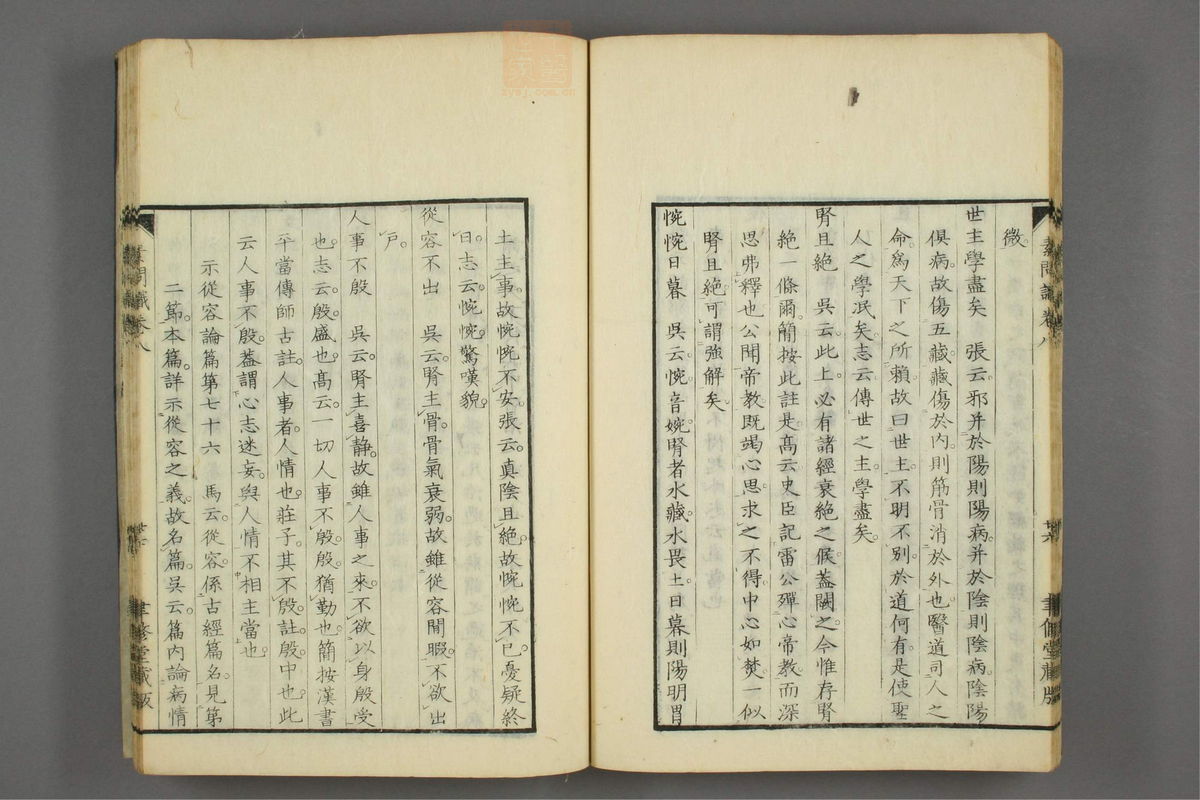 微。
世主學盡矣　張云。邪并於陽則陽病。并於陰則陰病。陰陽
俱病。故傷五藏。藏傷於內。則筋骨消於外也。醫道司人之
命。爲天下之所賴。故曰世主。不明不別。於道何有。是使聖
人之學泯矣。志云。傳世之主。學盡矣。
腎且絕　吳云。此上必有諸經衰絕之候。蓋闕之。今惟存腎
絕一條爾。簡按此註是。高云。史臣記雷公殫心帝教。而深
思弗釋也。公聞帝教。既竭心思。求之不得。中心如焚。一似
腎且絕。可謂強解矣。
惋惋日暮　吳云。惋。音婉。腎者水藏。水畏土。日暮則陽明胃
土主事。故惋惋不安。張云。眞陰且絕。故惋惋不已。憂疑終
日。志云。惋惋。驚嘆貌。
從容不出　吳云。腎主骨。骨氣衰弱。故雖從容閒暇。不欲出
戶。
人事不殷　吳云。腎主喜靜。故雖人事之來。不欲以身殷受
也。志云。殷。盛也。高云。一切人事不殷。殷。猶勤也。簡按漢書
平當傳師古註。人事者。人情也。莊子其不殷。註。殷。中也。此
云人事不殷。蓋謂心志迷妄。與人情不相主當也。
示從容論篇第七十六　馬云。從容。係古經篇名。見第
二節。本篇詳示從容之義。故名篇。吳云。篇內論病情
素問識卷八
聿修堂藏版